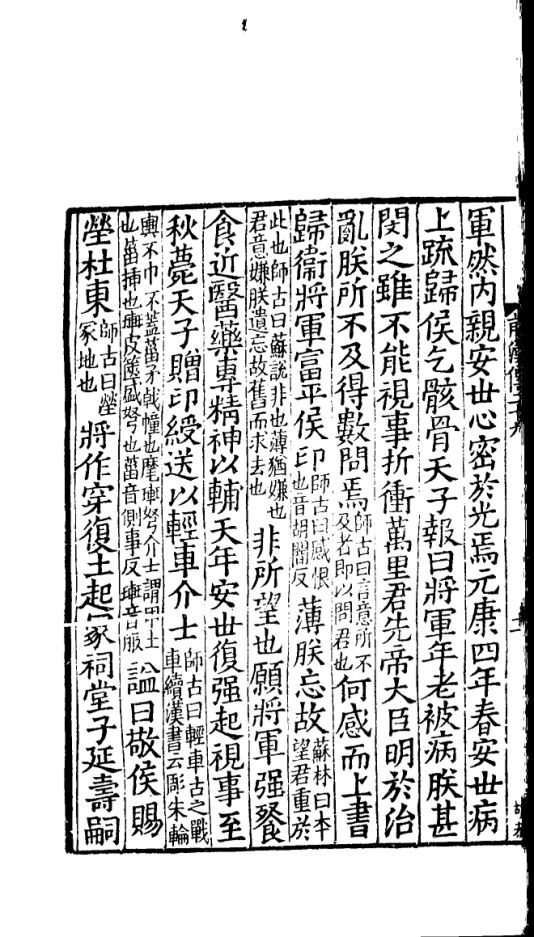 軍然內親安世心密於光焉元康四年春安世病
上䟽歸侯乞骸骨天子報曰將軍年老被病朕甚
閔之雖不能視事折衝萬里君先帝大臣明於治
亂朕所不及得數問焉師古曰言意所不及者即以問君也何感而上書
歸衞將軍富平侯印師古曰感恨也音胡闇反薄朕忘故蘇林曰本望君重於
此也師古曰蘇說非也薄猶嫌也君意嫌朕遺忘故舊而求去也非所望也願將軍强餐
食近醫藥專精神以輔天年安世復强起視事至
秋薨天子贈印綬送以輕車介士師古曰輕車古之戰車續漢書云彫朱輪
輿不巾不蓋菑矛戟幢也麾𨍏弩介士謂甲士也菑插也𨍏皮篋盛弩也菑音側事反𨍏音服謚曰敬侯賜
塋杜東師古曰塋冢地也將作穿復土起冢祠堂子延壽嗣